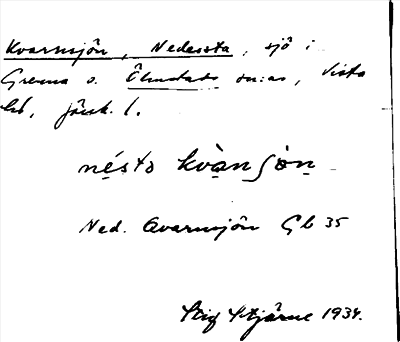 Kvarnsjön, Nedersta, sjö i
Grenna o. Ölmstads sn:ar, Vista
hd, Jönk. l.
nésto kvànʃòn
Ned. Qvarnsjön Gb 35
Stig Stjärne 1934.